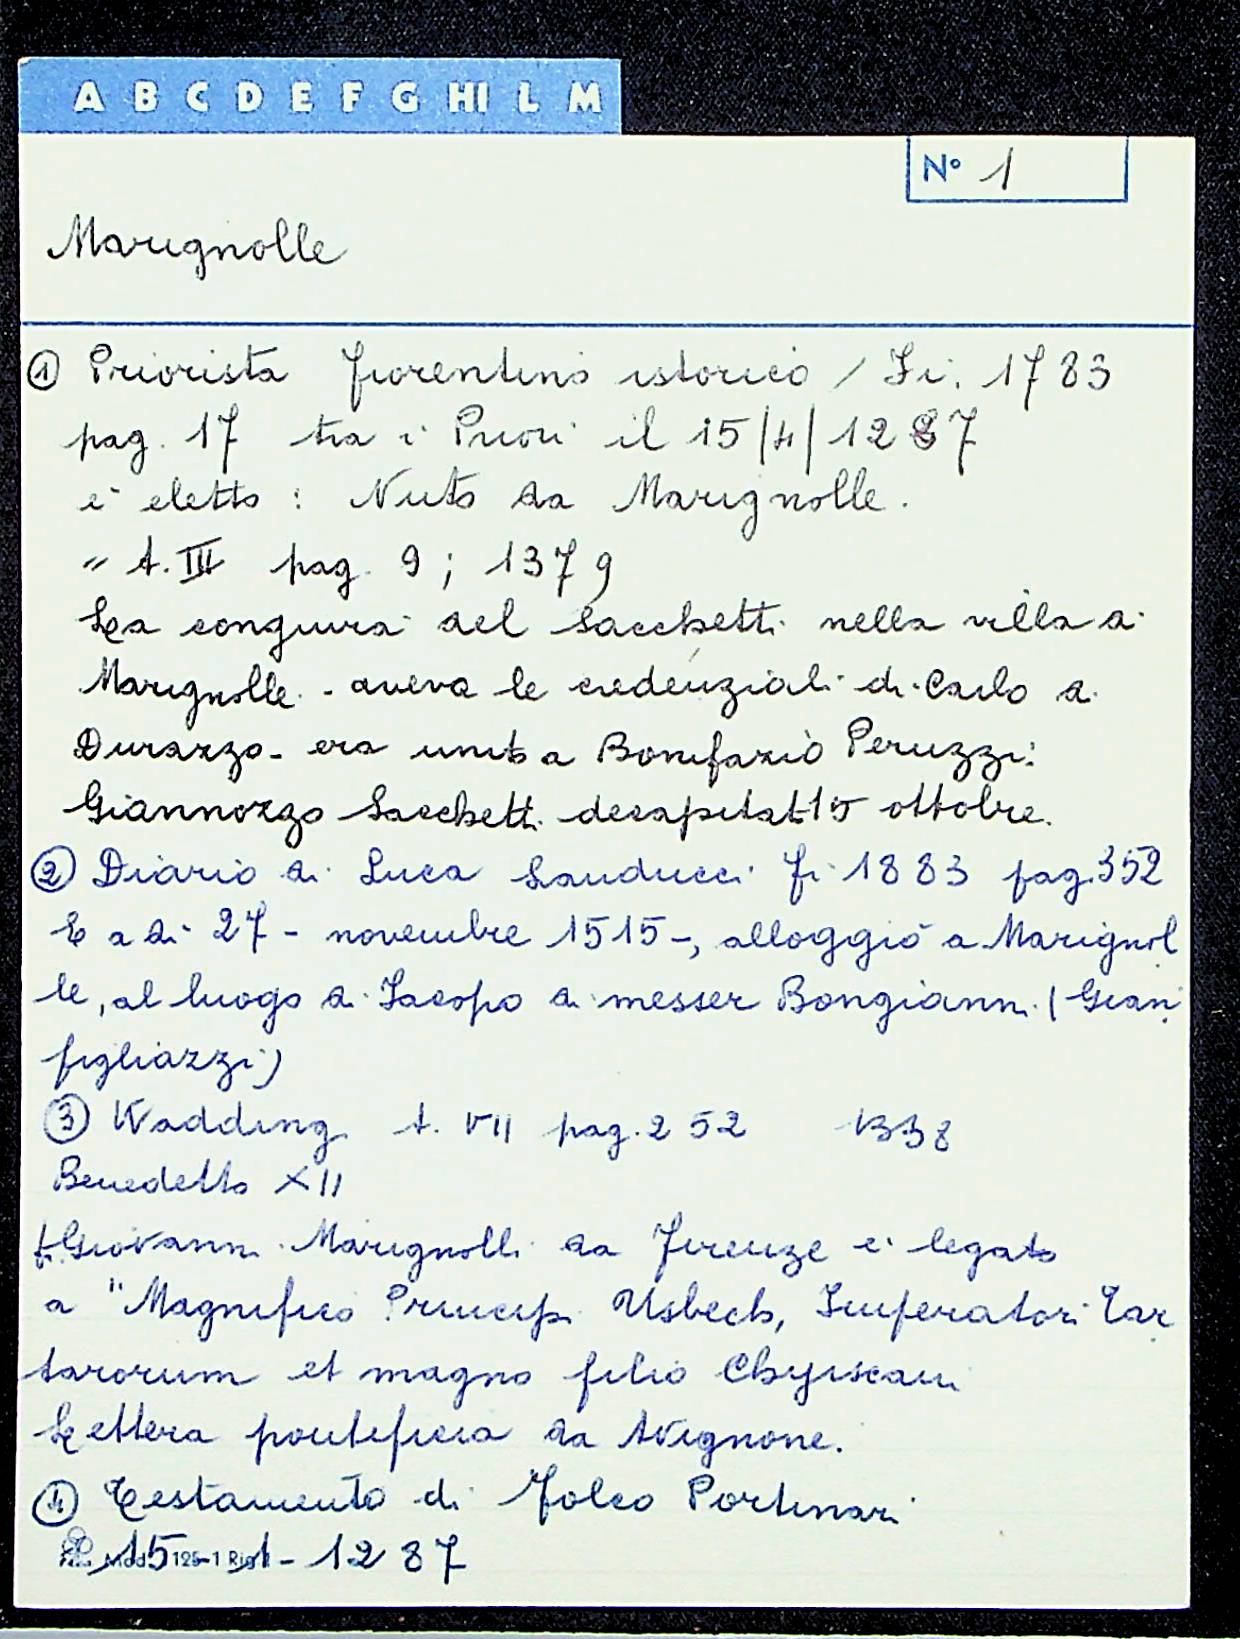 A B C D E F G HI L M
N° 1
Marignolle
① Priorista fiorentino istorico / Fi. 1783
pag. 17 tra i Priori il 15/4/1287
è eletto : Nuto da Marignolle.
" t. III pag. 9 ; 1379
La congiura del Sacchetti nella villa di
Marignolle - aveva le credenziali di Carlo di
Durazzo - era unito a Bonifazio Peruzzi:
Giannozzo Sacchetti decapitat 15 ottobre.
② Diario di Luca Landucci Fi 1883 pag. 352
E a di 27 - novembre 1515 -, alloggiò a Marignol
le, al luogo di Jacopo di messer Bongianni (Gian
figliazzi)
③ Wadding t. VII pag. 252 1338
Benedetto XII
f. Giovanni Marignolli da Firenze è legato
a "Magnifico Principi Usbech, Imperatori Tar
tarorum et magno filio
Lettera pontificia da Avignone.
④ Testamento di Folco Portinari
15 - 1 - 1287
Mod. 125-1 Rig.